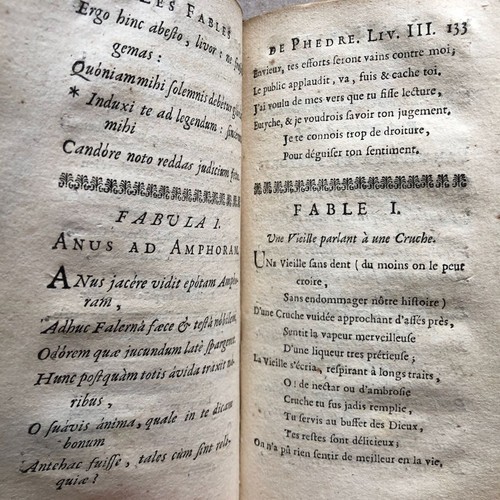 LES FABLES
Ergo hinc abesto, livor: ne
gemas:
Quóniam mihi solemnis debétur
* Induxi te ad legendum: sincérum
mihi
Candóre noto reddas judícium
FABULA I.
ANUS AD AMPHORAM.
ANus jacére vidit epótam Ampho-
ram,
Adhuc Falernâ fæce & testâ nóbili,
Odórem quæ jucundum latè spargeret.
Hunc postquàm totis ávida traxit ná-
ribus,
O suávis ánima, quale in te dicam
bonum
Antehac fuisse, tales cùm sint reli-
quiæ?
DE PHEDRE. LIV. III. 133
Envieux, tes efforts seront vains contre moi;
Le public applaudit, va, fuis & cache toi.
J'ai voulu de mes vers que tu fisse lecture,
Eutyche, & je voudrois savoir ton jugement.
Je te connois trop de droiture,
Pour déguiser ton sentiment.
FABLE I.
Une Vieille parlant à une Cruche.
UNe Vieille sans dent (du moins on le peut
croire,
Sans endommager nôtre histoire)
D'une Cruche vuidée approchant d'assés près,
Sentit la vapeur merveilleuse
D'une liqueur tres prétieuse;
La Vieille s'écria, respirant à longs traits,
O! de nectar ou d'ambrosie
Cruche tu fus jadis remplie,
Tu servis au buffet des Dieux,
Tes restes sont délicieux;
On n'a pâ rien sentir de meilleur en la vie,